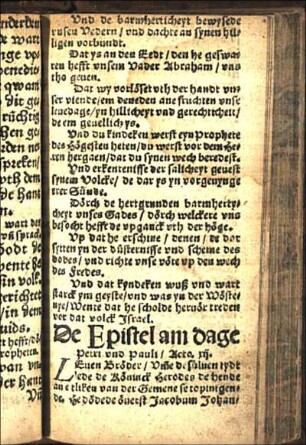 Vnd de barmherticheyt bewysede
vnsen Vedern / vnd dachte an synen hil-
ligen vorbundt.
Dat ys an den Eedt / den he geswa-
ren hefft vnsem Vader Abraham / vns
tho geuen.
Dat wy vorlöset vth der handt vns
ser viende / em deneden ane fruchten vnse
leuedage / yn hillicheyt vnd gerechticheit /
de em geuellich ys.
Vnd du kindeken werst eyn Prophete
des Högesten heten / du werst vor dem He-
ren hergaen / dat du synen wech beredest.
Vnd erkentenisse der salicheyt geuest
synem Volcke / de dar ys yn vorgeuynge
erer Sünde.
Dörch de hertgrunden barmhertys-
cheyt vnses Gades / dörch welckere vns
besocht hefft de vpganck vth der höge.
Vp dat he erschine / denen / de dar
sitten yn der düsternisse vnd scheme des
dodes / vnd richte vnse vöte vp den wech
des Fredes.
Vnd dat kyndeken wuß vnd wart
starck ym geyste / vnd was yn der Wöste-
nye / Wente dat he scholde heruör treden
vor dat volck Israel.
De Epistel am dage
Petri vnd Pauli / Acto. xij.
LEuen Bröder / Vmme de süluen tydt
lede de Köninck Herodes de hende
an etliken van der Gemene se to pinigen
de. He dödede öuerst Jacobum Johan-